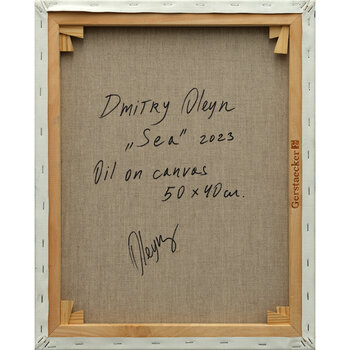 Dmitry Oleyn
„Sea" 2023
Oil on canvas
50 x 40 cm.
Oleyn
Gerstaecker